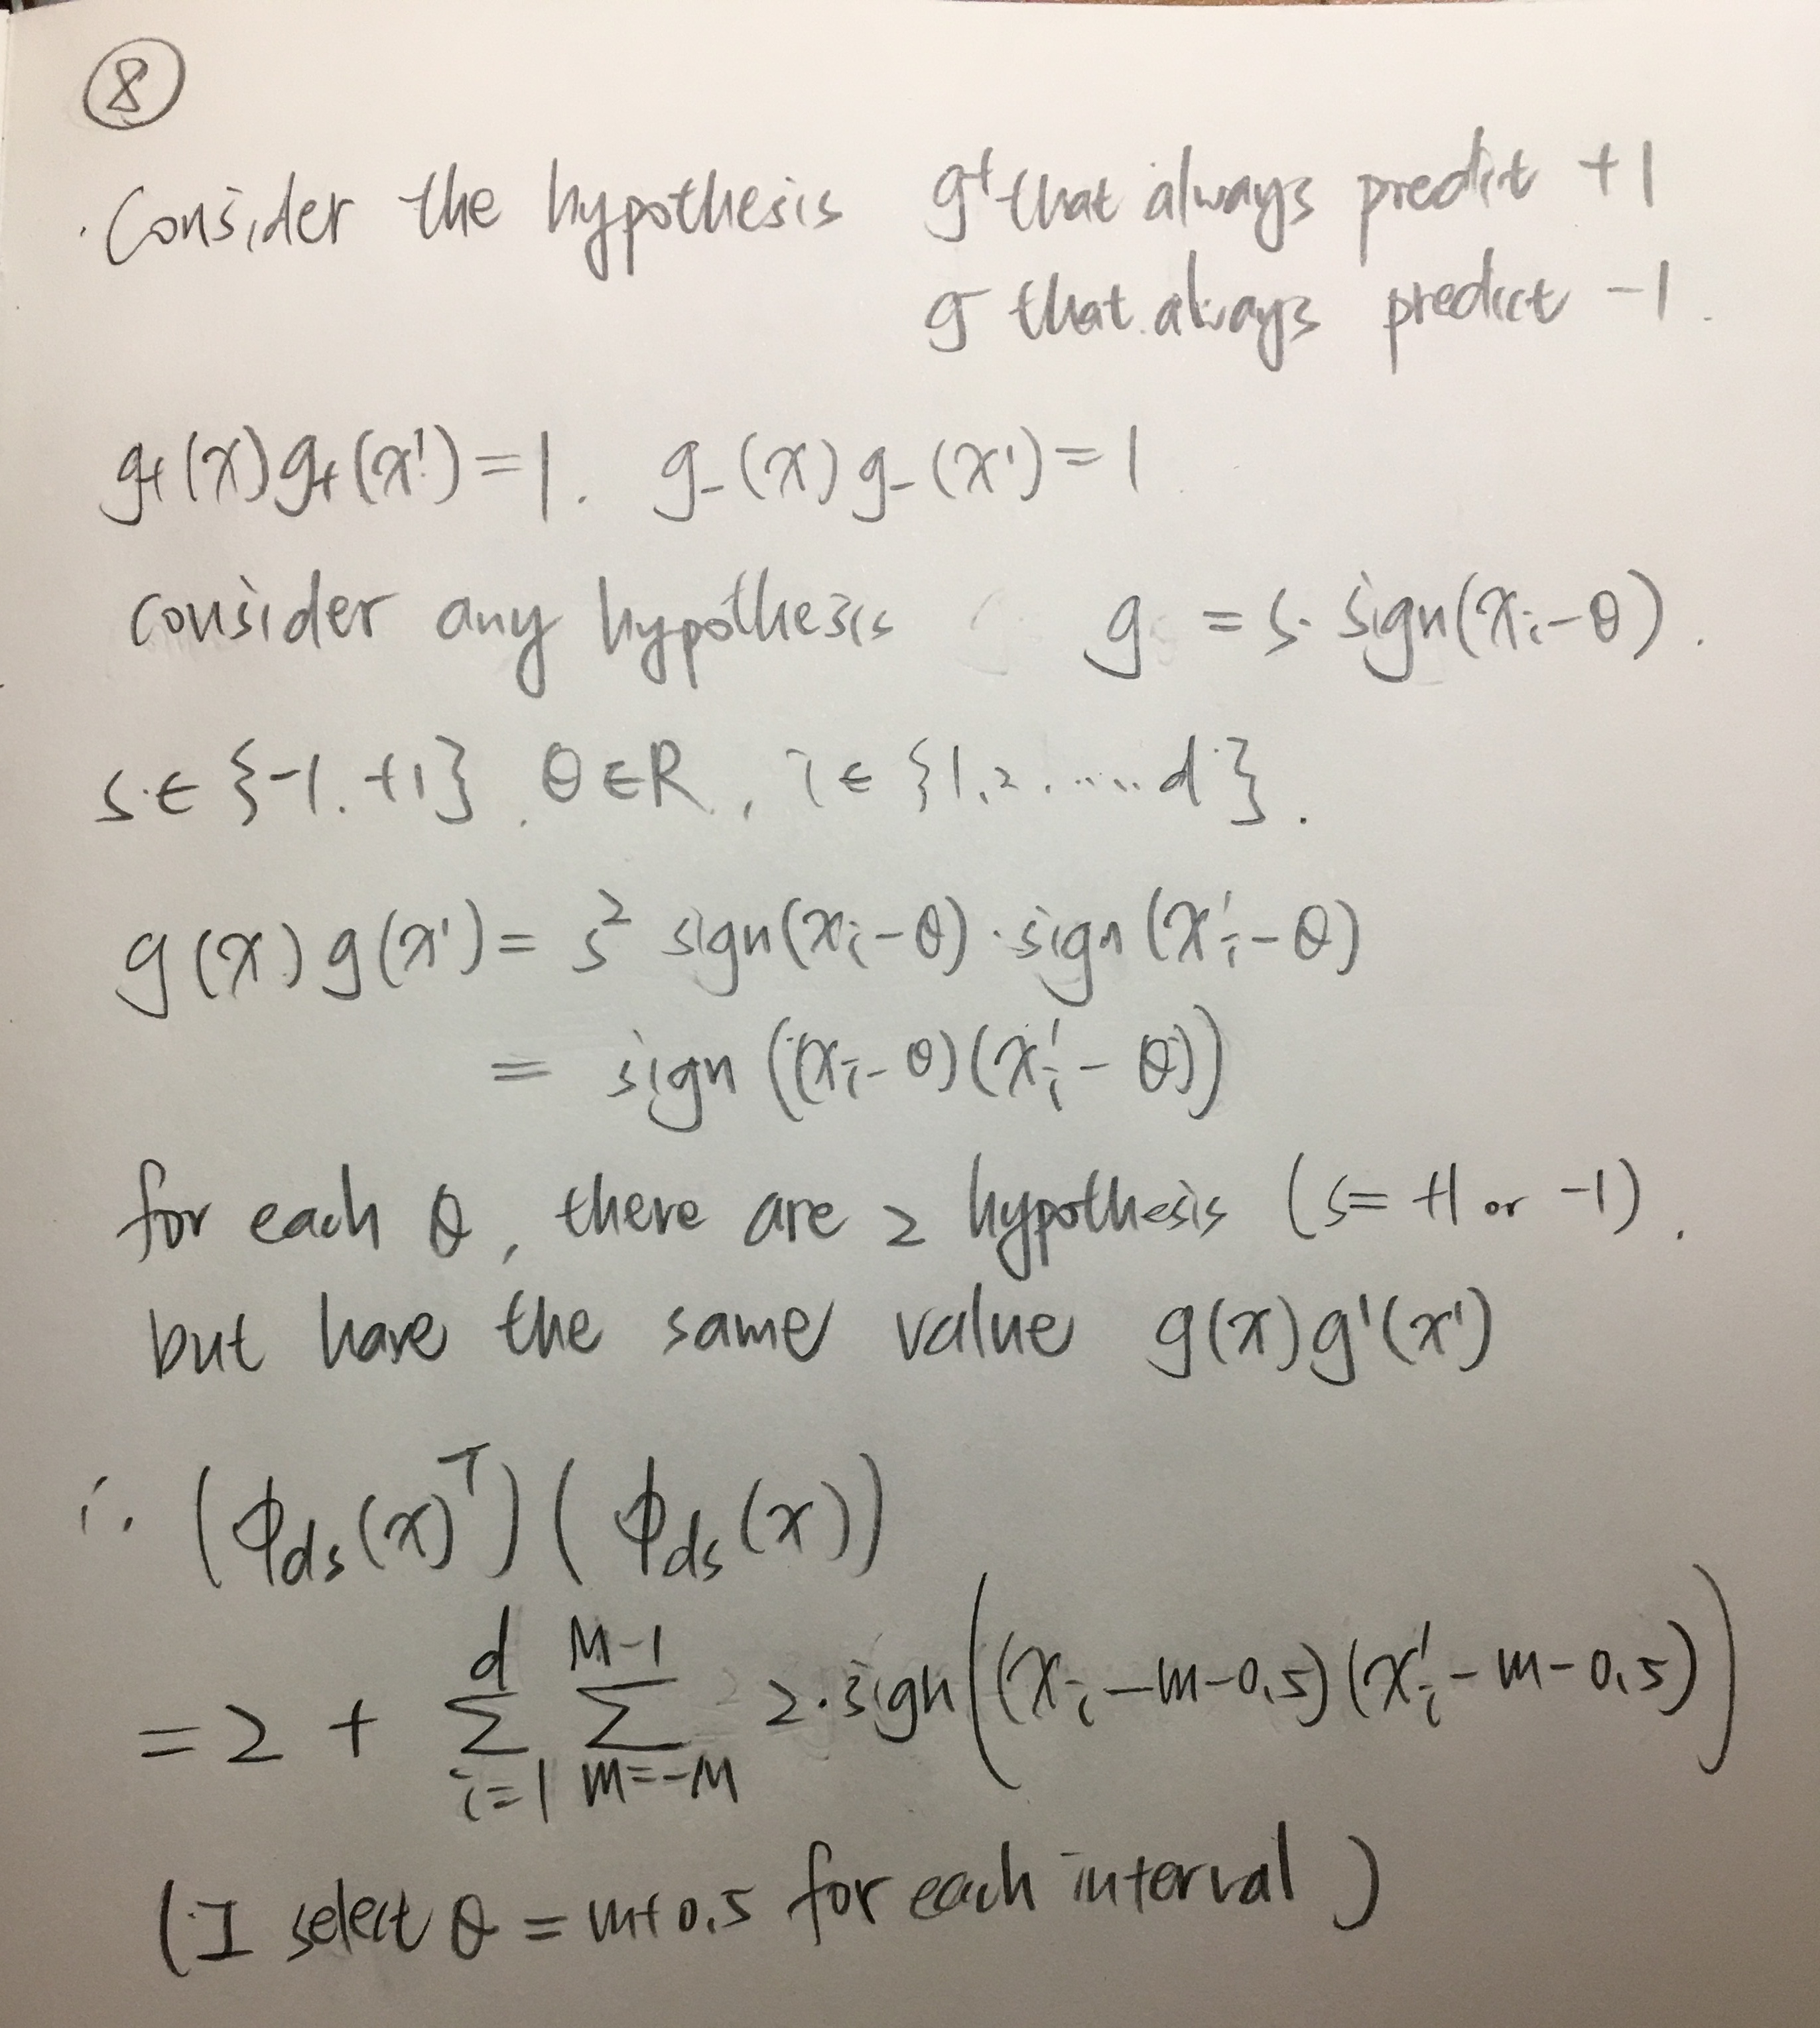 ⑧
Consider the hypothesis g⁺ that always predict +1
g⁻ that always predict -1.
g₊(x)g₊(x') = 1. g₋(x)g₋(x') = 1
consider any hypothesis g = s·sign(xᵢ-θ).
s ∈ {-1, +1}, θ∈R, i ∈ {1,2.....d}.
g(x)g(x') = s² sign(xᵢ-θ)·sign(x'ᵢ-θ)
= sign((xᵢ-θ)(x'ᵢ-θ))
for each θ, there are 2 hypothesis (s= +1 or -1).
but have the same value g(x)g'(x')
∴ (ϕds(x)ᵀ)(ϕds(x))
= 2 + Σ_{i=1}^{d} Σ_{m=-M}^{M-1} 2·sign((xᵢ-m-0.5)(x'ᵢ-m-0.5))
(I select θ = m+0.5 for each interval)